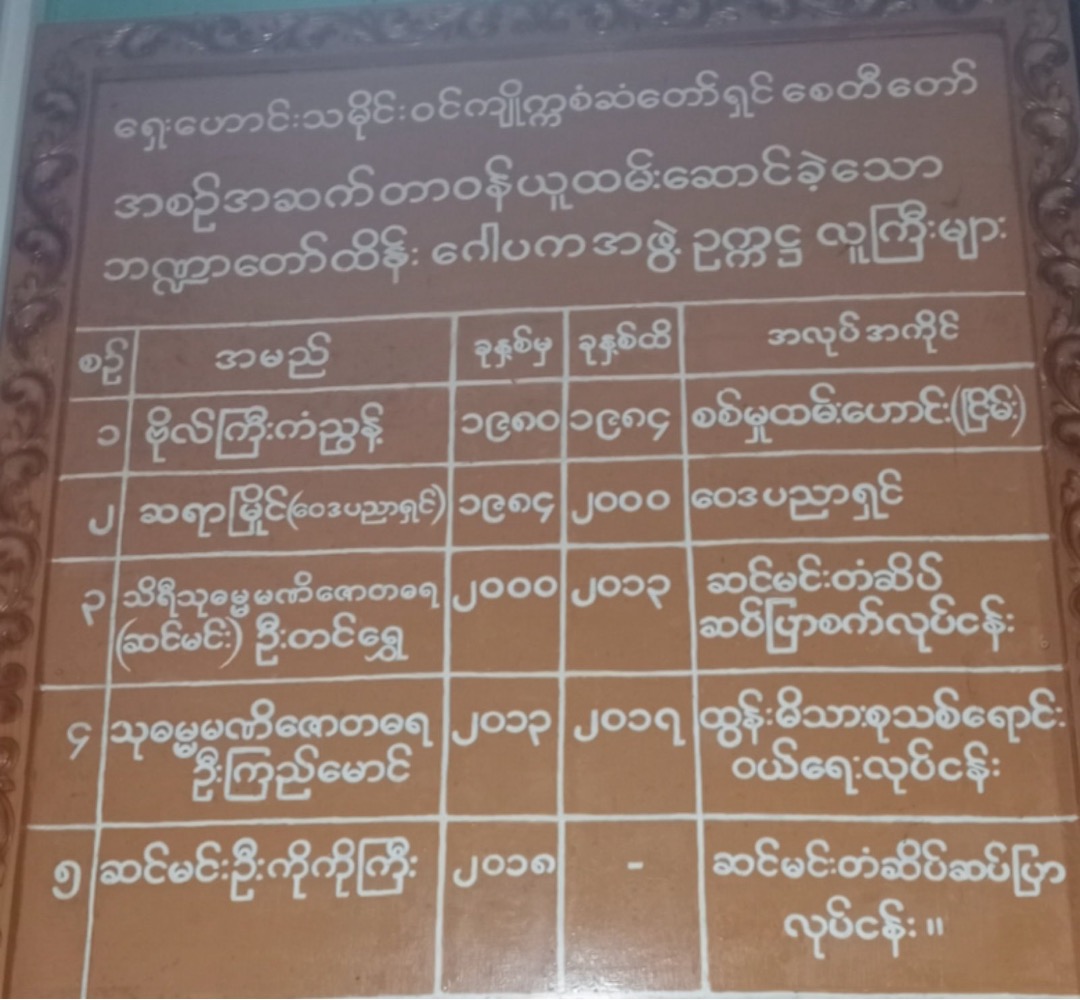 ရှေးဟောင်းသမိုင်းဝင်ကျိုက္ကစံဆံတော်ရှင်စေတီတော်
အစဉ်အဆက်တာဝန်ယူထမ်းဆောင်ခဲ့သော
ဘဏ္ဍာတော်ထိန်း ဂေါပကအဖွဲ့ ဥက္ကဋ္ဌ လူကြီးများ
စဉ် အမည် ခုနှစ်မှ ခုနှစ်ထိ အလုပ်အကိုင်
၁ ဗိုလ်ကြီးကံညွန့် ၁၉၈၀ ၁၉၈၄ စစ်မှုထမ်းဟောင်း(ငြိမ်း)
၂ ဆရာမြိုင်(ဝေဒပညာရှင်) ၁၉၈၄ ၂၀၀၀ ဝေဒပညာရှင်
၃ သိရီသုဓမ္မမဏိဇောတဓရ ၂၀၀၀ ၂၀၁၃ ဆင်မင်းတံဆိပ်
(ဆင်မင်း) ဦးတင်ရွှေ ဆပ်ပြာစက်လုပ်ငန်း
၄ သုဓမ္မမဏိဇောတဓရ ၂၀၁၃ ၂၀၁၇ ထွန်းမိသားစုသစ်ရောင်း
ဦးကြည်မောင် ဝယ်ရေးလုပ်ငန်း
၅ ဆင်မင်းဦးကိုကိုကြီး ၂၀၁၈ - ဆင်မင်းတံဆိပ်ဆပ်ပြာ
လုပ်ငန်း ။